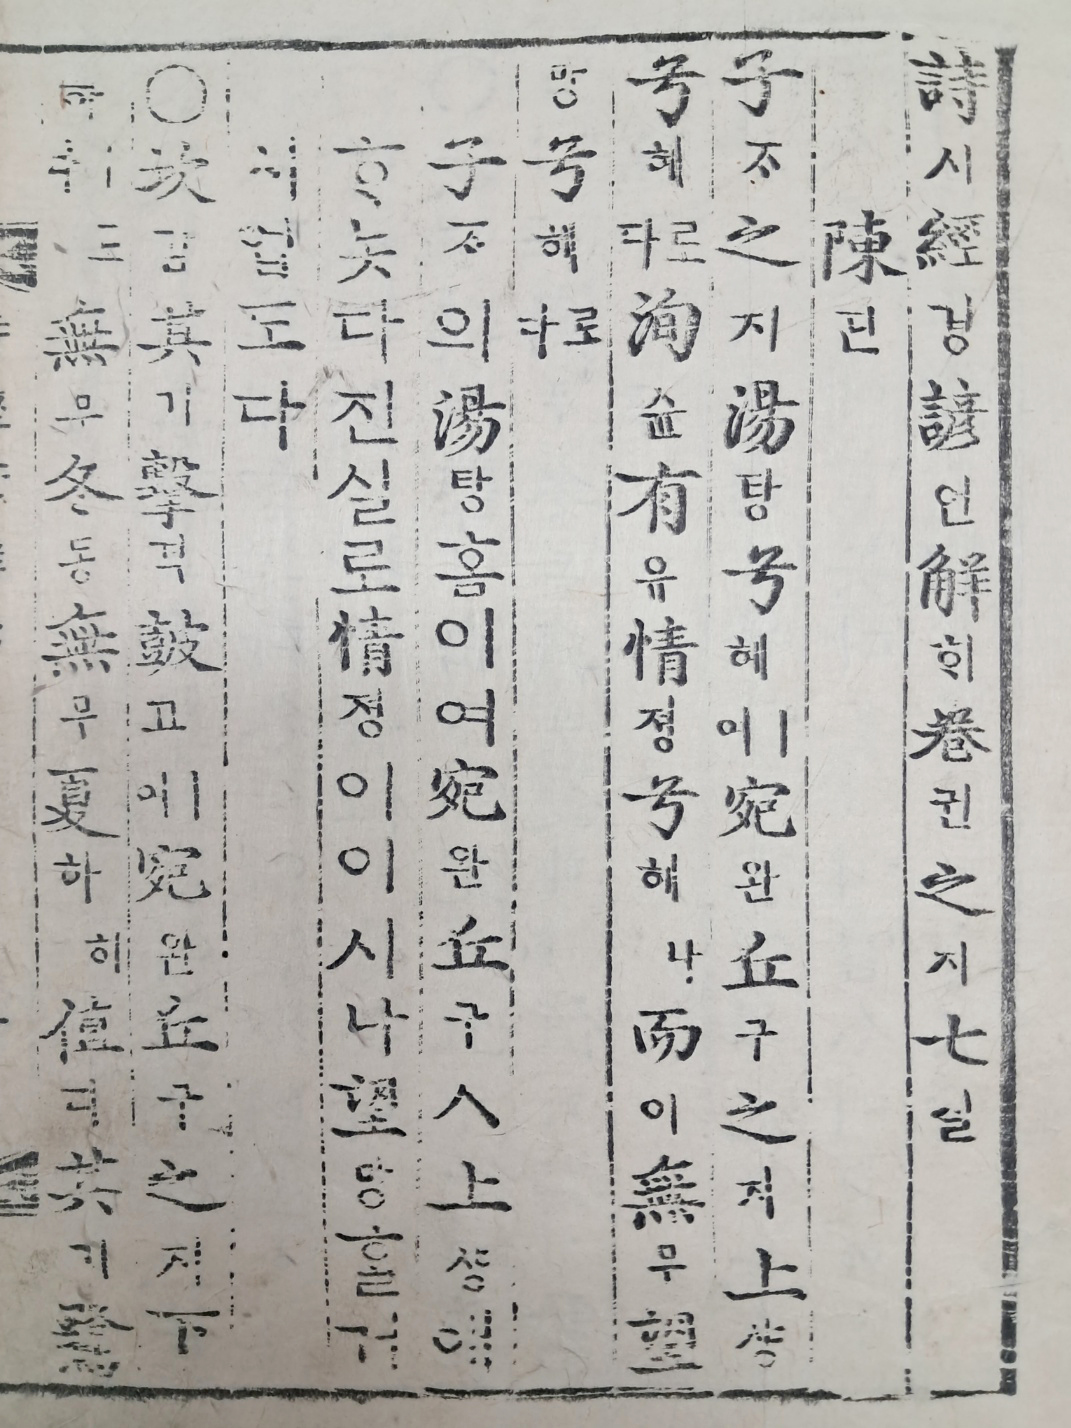 詩시經경諺언解ᄒᆡ卷권之지七칠
陳딘
子ᄌᆞ之지湯탕兮혜ㅣ여宛완丘구之지上샹
兮혜로다洵슌有유情졍兮혜나而이無무望
망兮혜로다
子ᄌᆞ의湯탕홈이여宛완丘구人上샹애
ᄒᆞ놋다진실로情졍이이시나望망홀
업도다
○坎감其기擊격鼓고ㅣ여宛완丘구之지下
하ㅣ로다無무冬동無무夏하히値티其기鷺